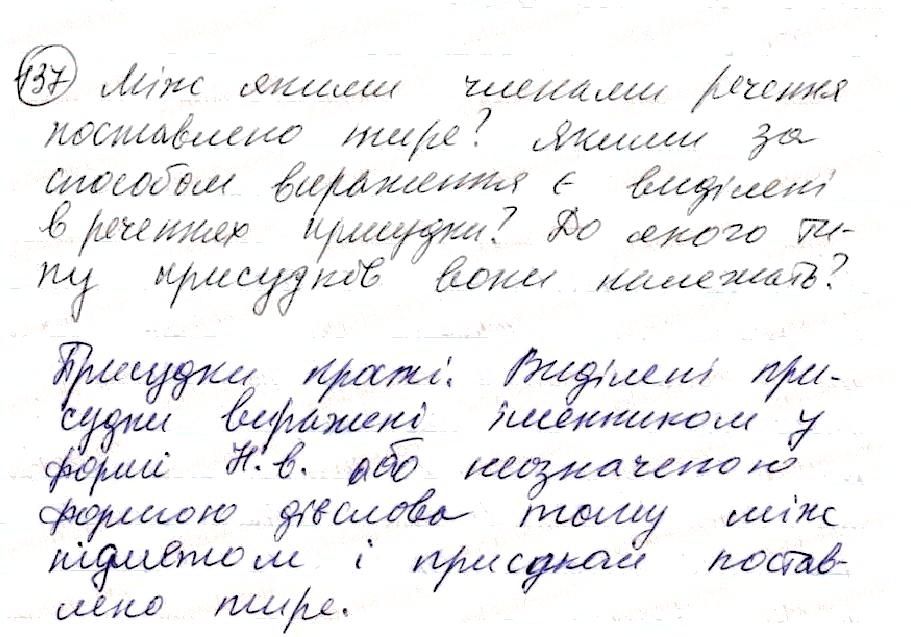 137 Між якими членами речення
поставлено тире? Якими за
способом вираження є виділені
в реченнях присудки? До якого ти-
пу присудків вони належать?
Присудки прості. Виділені при-
судки виражені іменником у
формі Н. в. або неозначеною
формою дієслова тому між
підметом і присдком постав-
лено тире.